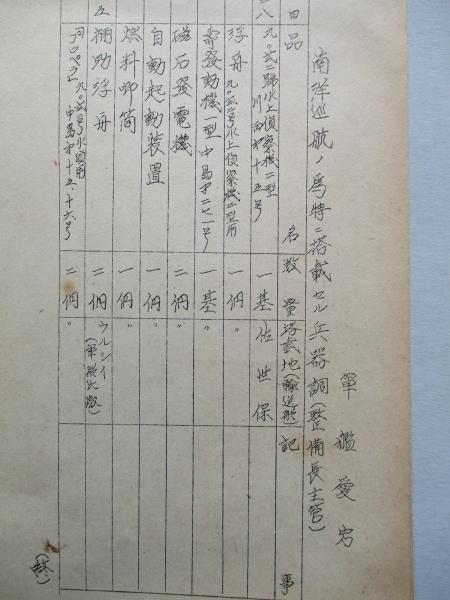 軍艦愛宕
南洋巡航ノ為特ニ搭載セル兵器調(整備長主管)
日 品名 数量 搭載地(輸送艦) 記事
八 九〇式二号水上偵察機二型 川西第十五号 一基 佐世保
浮舟 九〇式二号水上偵察機二型用 二個 〃
寿発動機一型 中島第二七一号 一基 〃
磁石發電機 二個 〃
自動起動装置 一個 〃
燃料唧筒 一個 〃
五 補助浮舟 二個 ウルシイ
同プロペラ 九〇式二号水偵用 中島第十五、十六号 二個 〃
(終)